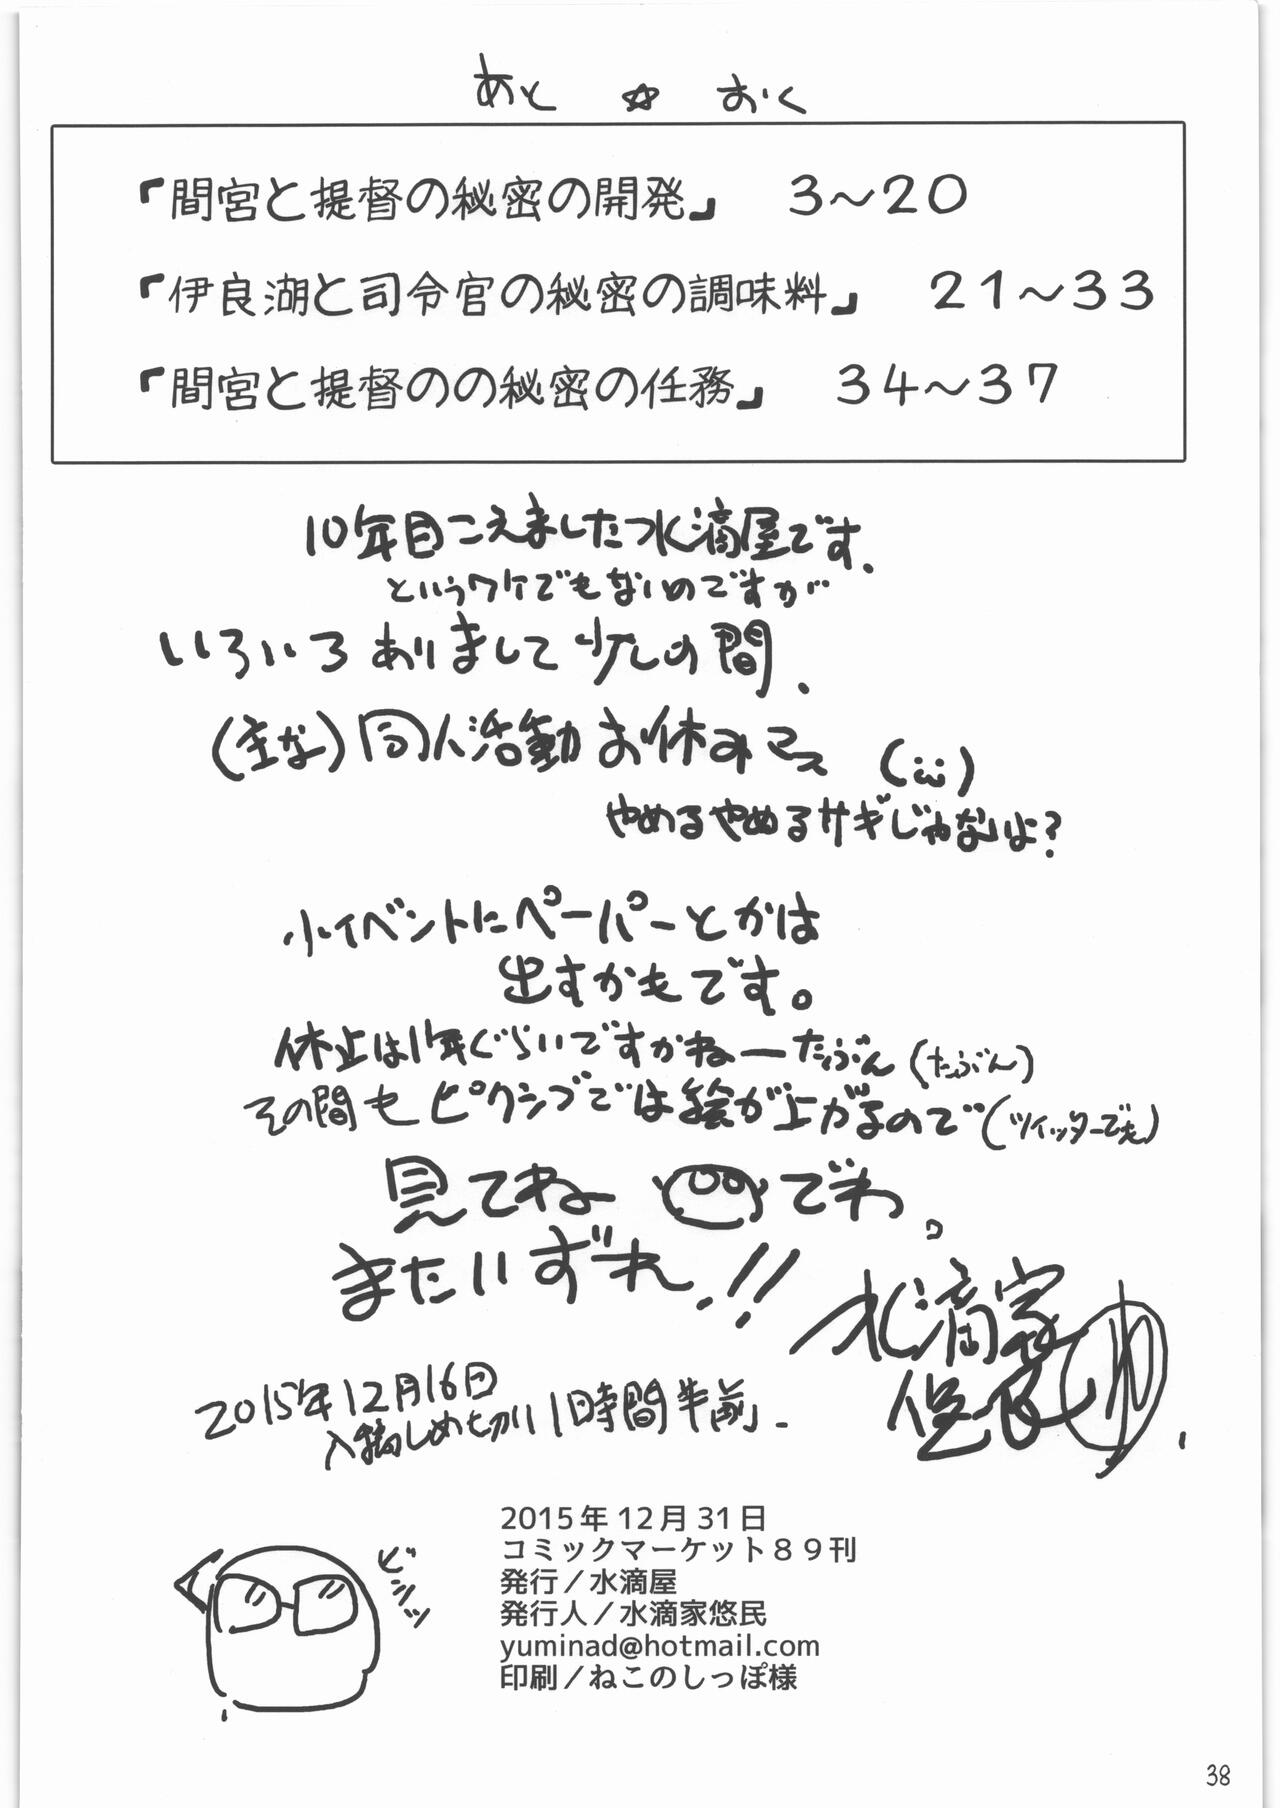 あと☆おく
「間宮と提督の秘密の開発」 3～20
「伊良湖と司令官の秘密の調味料」 21～33
「間宮と提督のの秘密の任務」 34～37
10年目こえました水滴屋です.
というワケでもないのですが
いろいろありまして少しの間.
(主な)同人活動お休みマス (:ω)
やめるやめるサギじゃないよ?
小イベントにペーパーとかは
出すかもです。
休止は1年ぐらいですかねーたぶん(たぶん)
その間もピクシブでは絵が上がるので(ツイッターでも)
見てねー でわ。
またいずれ.!!
水滴家
悠民
2015年12月16日
入稿しめ切り1時間半前.
ビシィッ
2015年12月31日
コミックマーケット89刊
発行／水滴屋
発行人／水滴家悠民
yuminad@hotmail.com
印刷／ねこのしっぽ様
38